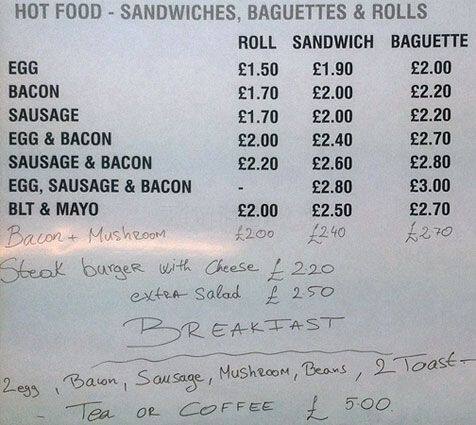 HOT FOOD - SANDWICHES, BAGUETTES & ROLLS
ROLL SANDWICH BAGUETTE
EGG £1.50 £1.90 £2.00
BACON £1.70 £2.00 £2.20
SAUSAGE £1.70 £2.00 £2.20
EGG & BACON £2.00 £2.40 £2.70
SAUSAGE & BACON £2.20 £2.60 £2.80
EGG, SAUSAGE & BACON - £2.80 £3.00
BLT & MAYO £2.00 £2.50 £2.70
Bacon + Mushroom £200 £240 £270
Steak burger with Cheese £ 2.20
extra Salad £ 250
BREAKFAST
2egg, Bacon, Sausage, Mushroom, Beans, 2 Toast -
- Tea OR COFFEE £ 5.00.